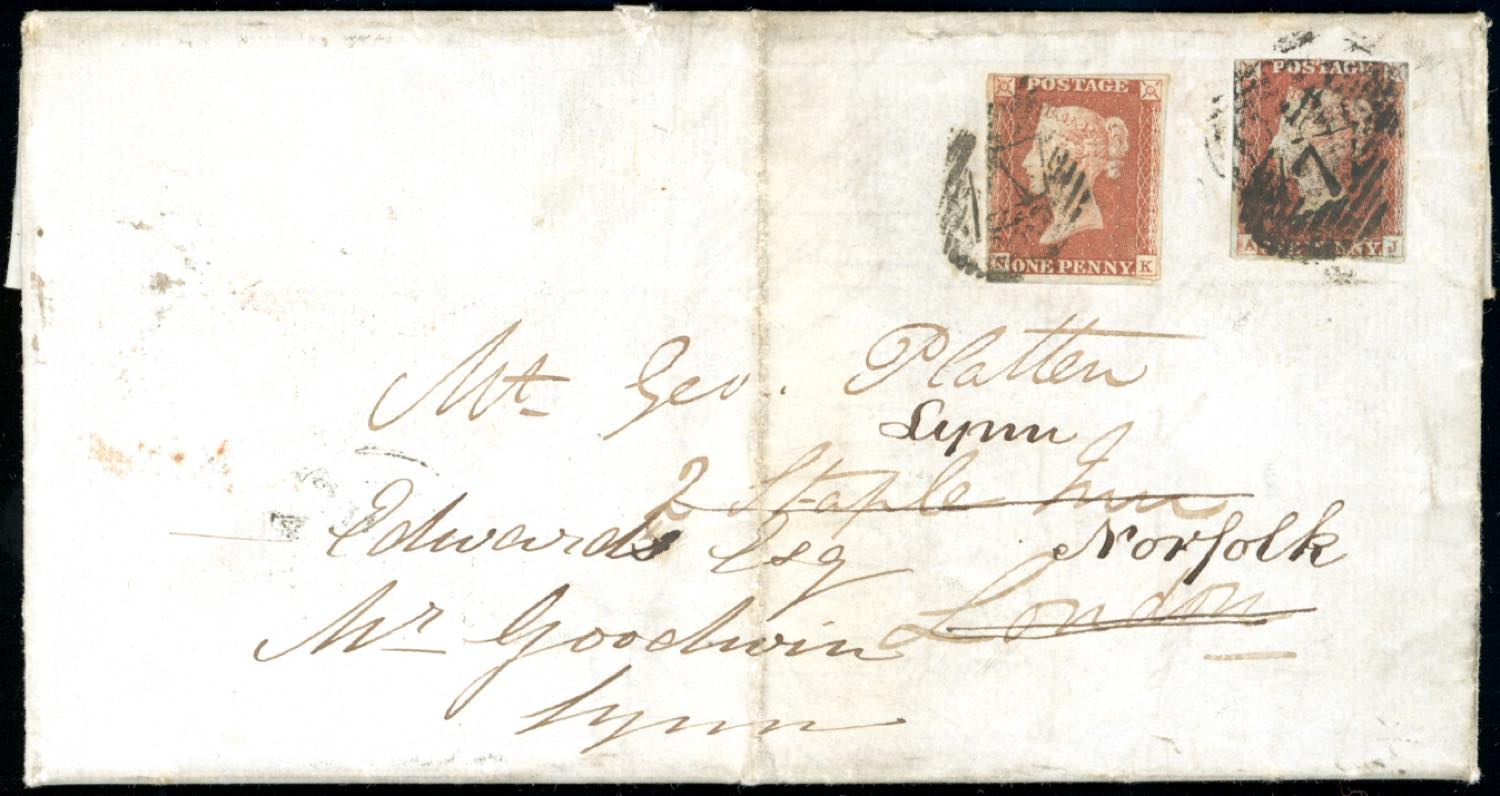 POSTAGE
N ONE PENNY K
POSTAGE
A ONE PENNY J
7
Mr Geo. Platten
Lynn
2 Staple Inn
Edwards Esq Norfolk
Mr Goodwin London
Lynn